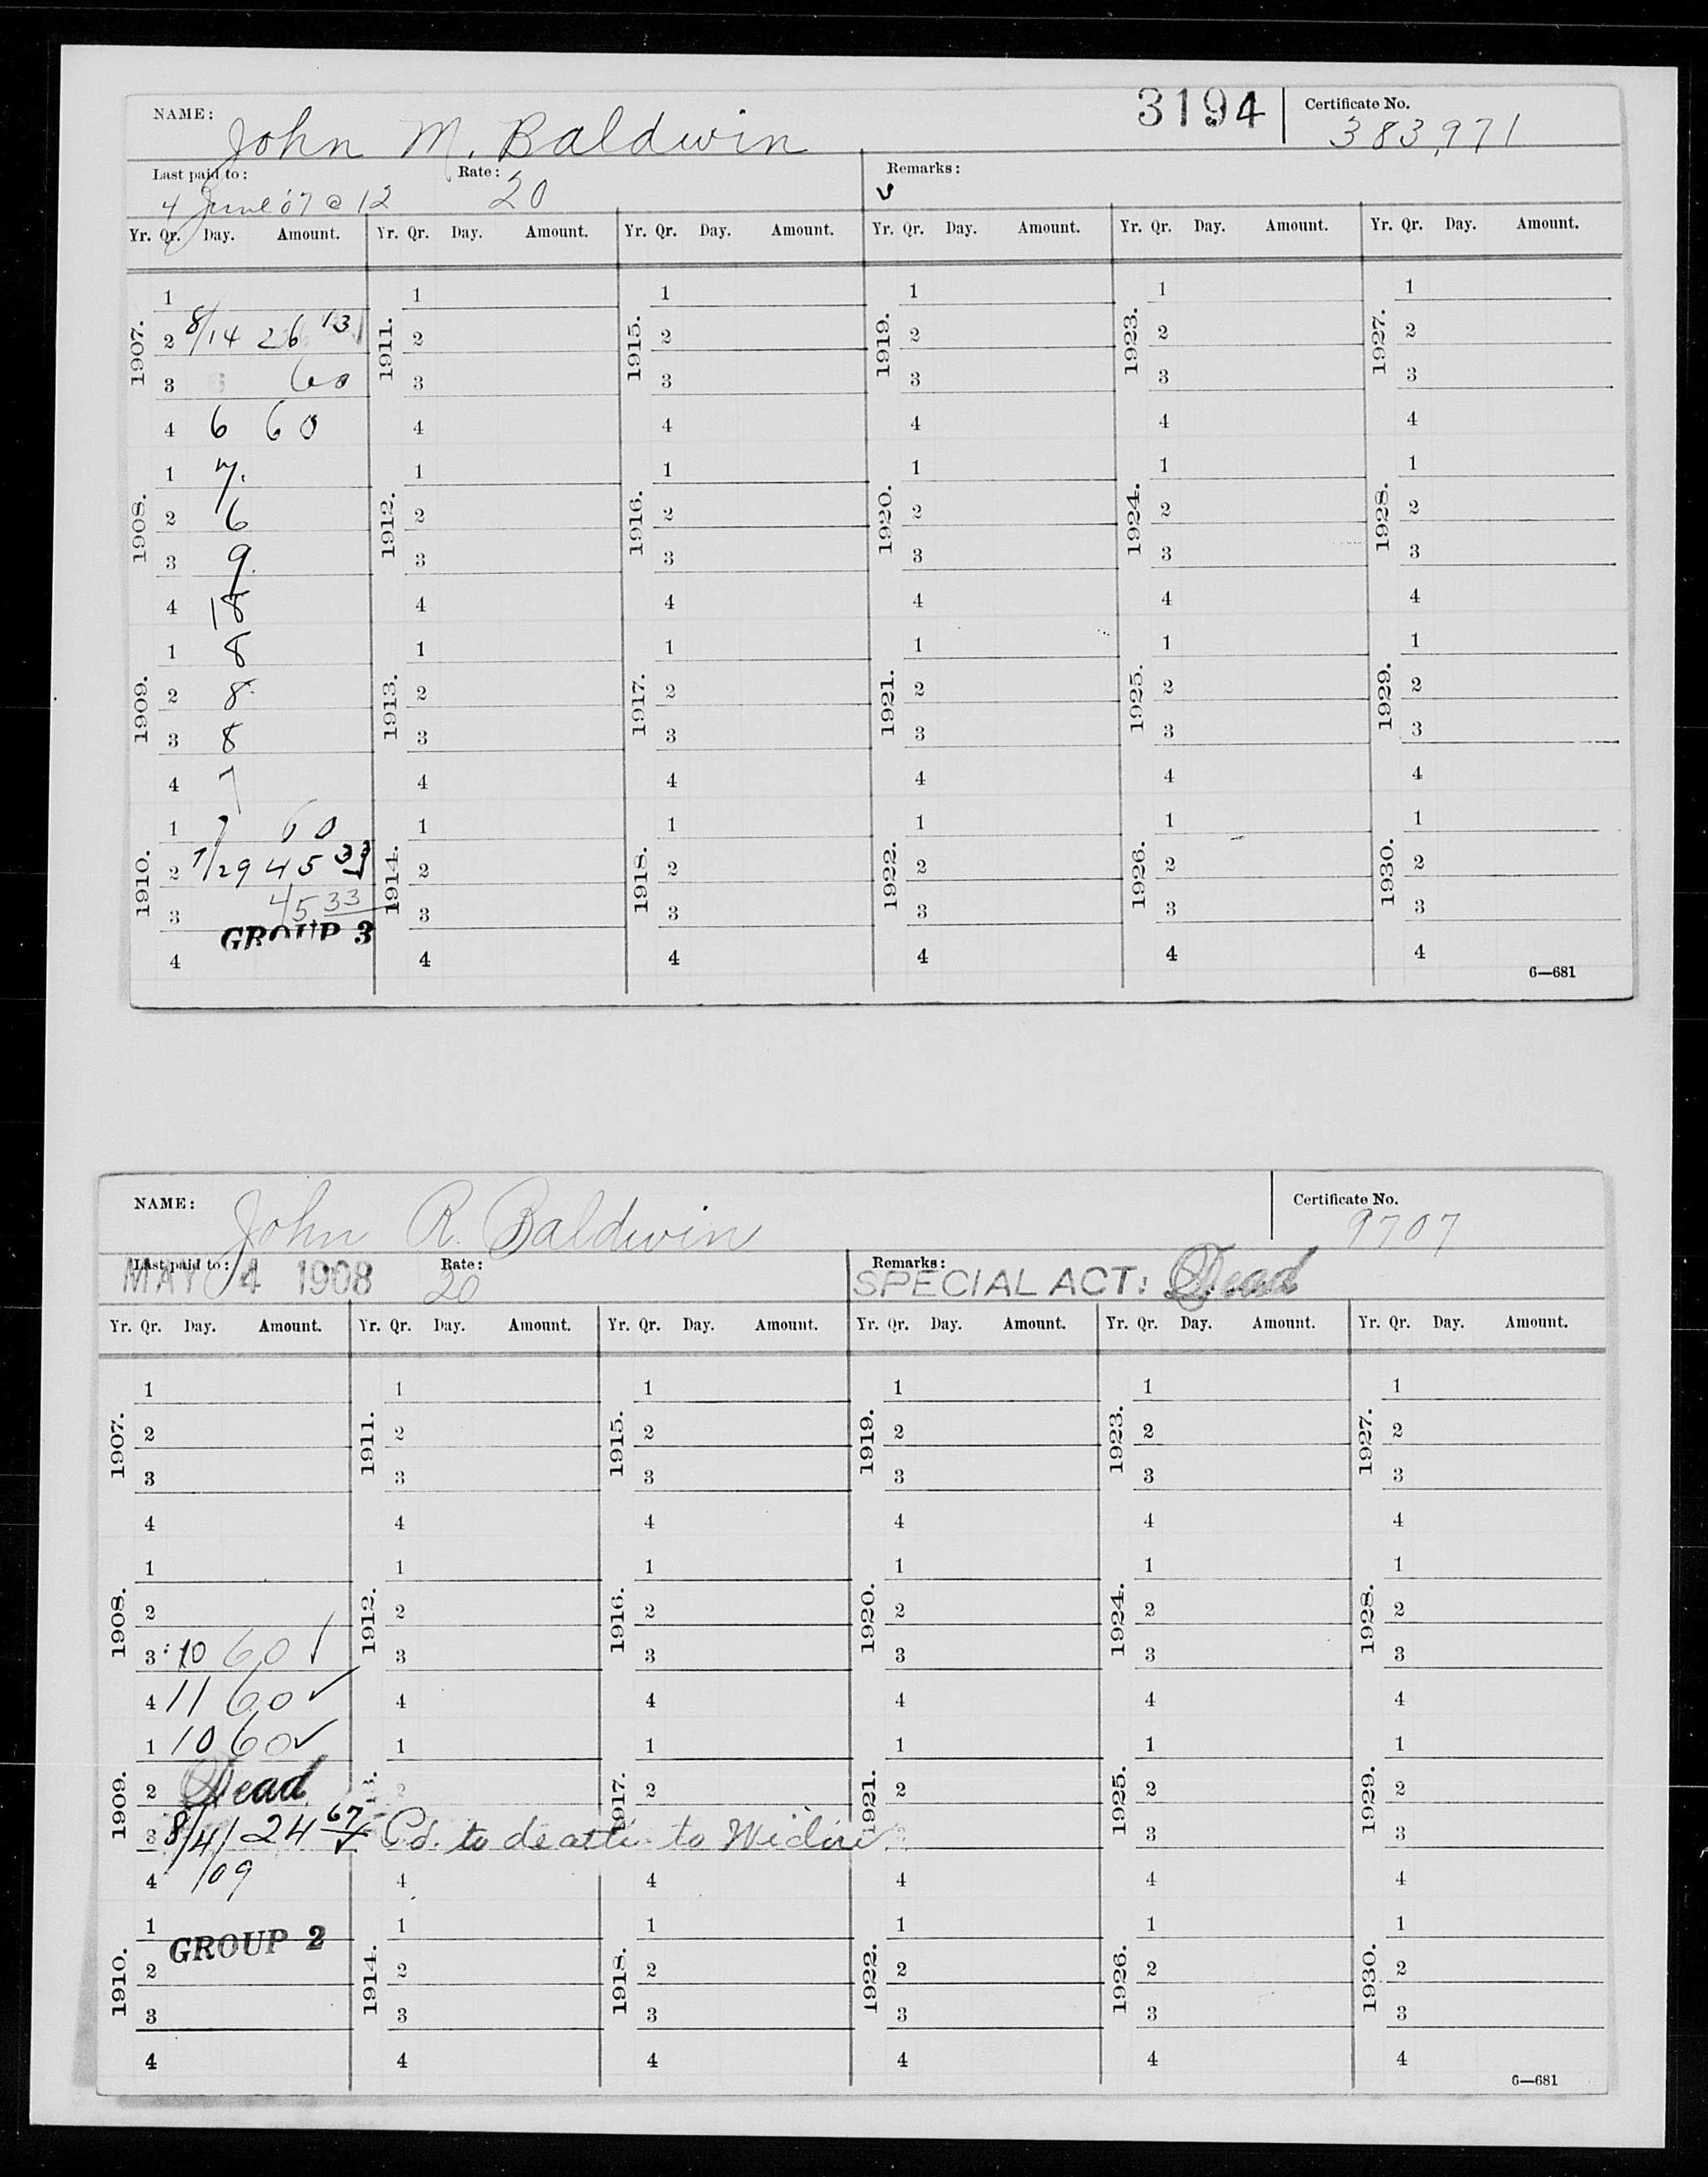 NAME: John M. Baldwin 3194 Certificate No. 383,971
Last paid to: 4 June '07 @ 12 Rate: 20 Remarks:
Yr. Qr. Day. Amount. Yr. Qr. Day. Amount. Yr. Qr. Day. Amount. Yr. Qr. Day. Amount. Yr. Qr. Day. Amount. Yr. Qr. Day. Amount.
1907. 1911. 1915. 1919. 1923. 1927.
1 1 1 1 1 1
2 8/14 26 13 2 2 2 2 2
3 6 60 3 3 3 3 3
4 6 60 4 4 4 4 4
1908. 1912. 1916. 1920. 1924. 1928.
1 7. 1 1 1 1 1
2 6 2 2 2 2 2
3 9. 3 3 3 3 3
4 18 4 4 4 4 4
1909. 1913. 1917. 1921. 1925. 1929.
1 8 1 1 1 1 1
2 8 2 2 2 2 2
3 8 3 3 3 3 3
4 7 4 4 4 4 4
1910. 1914. 1918. 1922. 1926. 1930.
1 7 60 1 1 1 1 1
2 7/29 45 33 2 2 2 2 2
3 45 33 3 3 3 3 3
GROUP 3
4 4 4 4 4 4
6—681
NAME: John R. Baldwin Certificate No. 9707
Last paid to: MAY 4 1908 Rate: 20 Remarks: SPECIAL ACT: Dead
Yr. Qr. Day. Amount. Yr. Qr. Day. Amount. Yr. Qr. Day. Amount. Yr. Qr. Day. Amount. Yr. Qr. Day. Amount. Yr. Qr. Day. Amount.
1907. 1911. 1915. 1919. 1923. 1927.
1 1 1 1 1 1
2 2 2 2 2 2
3 3 3 3 3 3
4 4 4 4 4 4
1908. 1912. 1916. 1920. 1924. 1928.
1 1 1 1 1 1
2 2 2 2 2 2
3 10 60 ✓ 3 3 3 3 3
4 11 60 ✓ 4 4 4 4 4
1909. 3. 1917. 1921. 1925. 1929.
1 10 60 ✓ 1 1 1 1 1
2 Dead 2 2 2 2 2
3 8/4/09 24 67 ✓ Pd. to death to Widow 3 3
4 4 4 4 4 4
1910. 1914. 1918. 1922. 1926. 1930.
1 1 1 1 1 1
GROUP 2
2 2 2 2 2 2
3 3 3 3 3 3
4 4 4 4 4 4
6—681